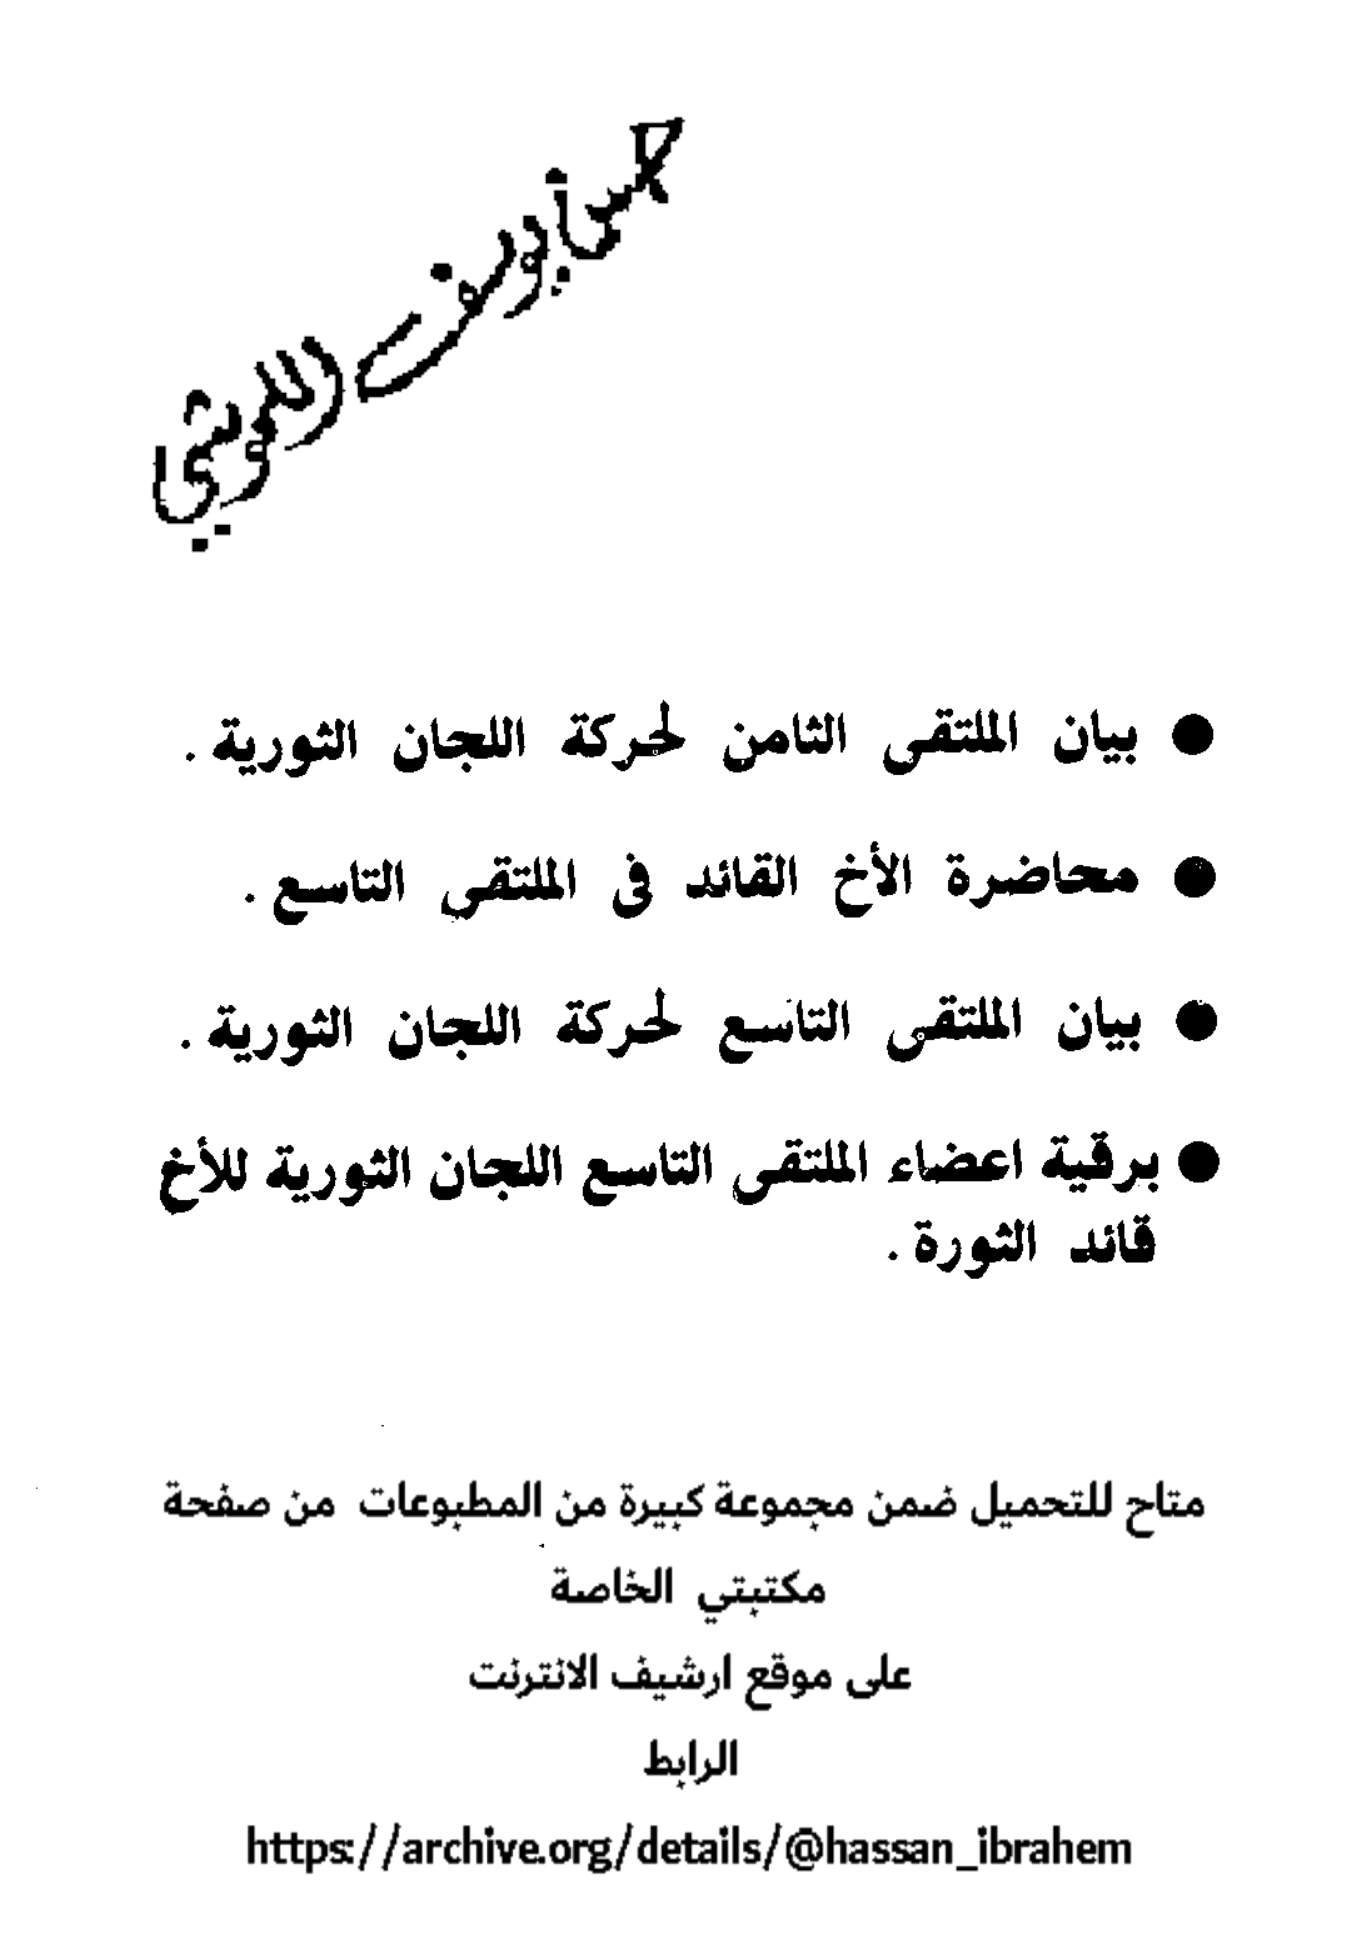 ● بيان الملتقى الثامن لحركة اللجان الثورية .
● محاضرة الأخ القائد فى الملتقى التاسع .
● بيان الملتقى التاسع لحركة اللجان الثورية .
● برقية اعضاء الملتقى التاسع اللجان الثورية للأخ
قائد الثورة .
متاح للتحميل ضمن مجموعة كبيرة من المطبوعات من صفحة
مكتبتي الخاصة
على موقع ارشيف الانترنت
الرابط
https://archive.org/details/@hassan_ibrahem